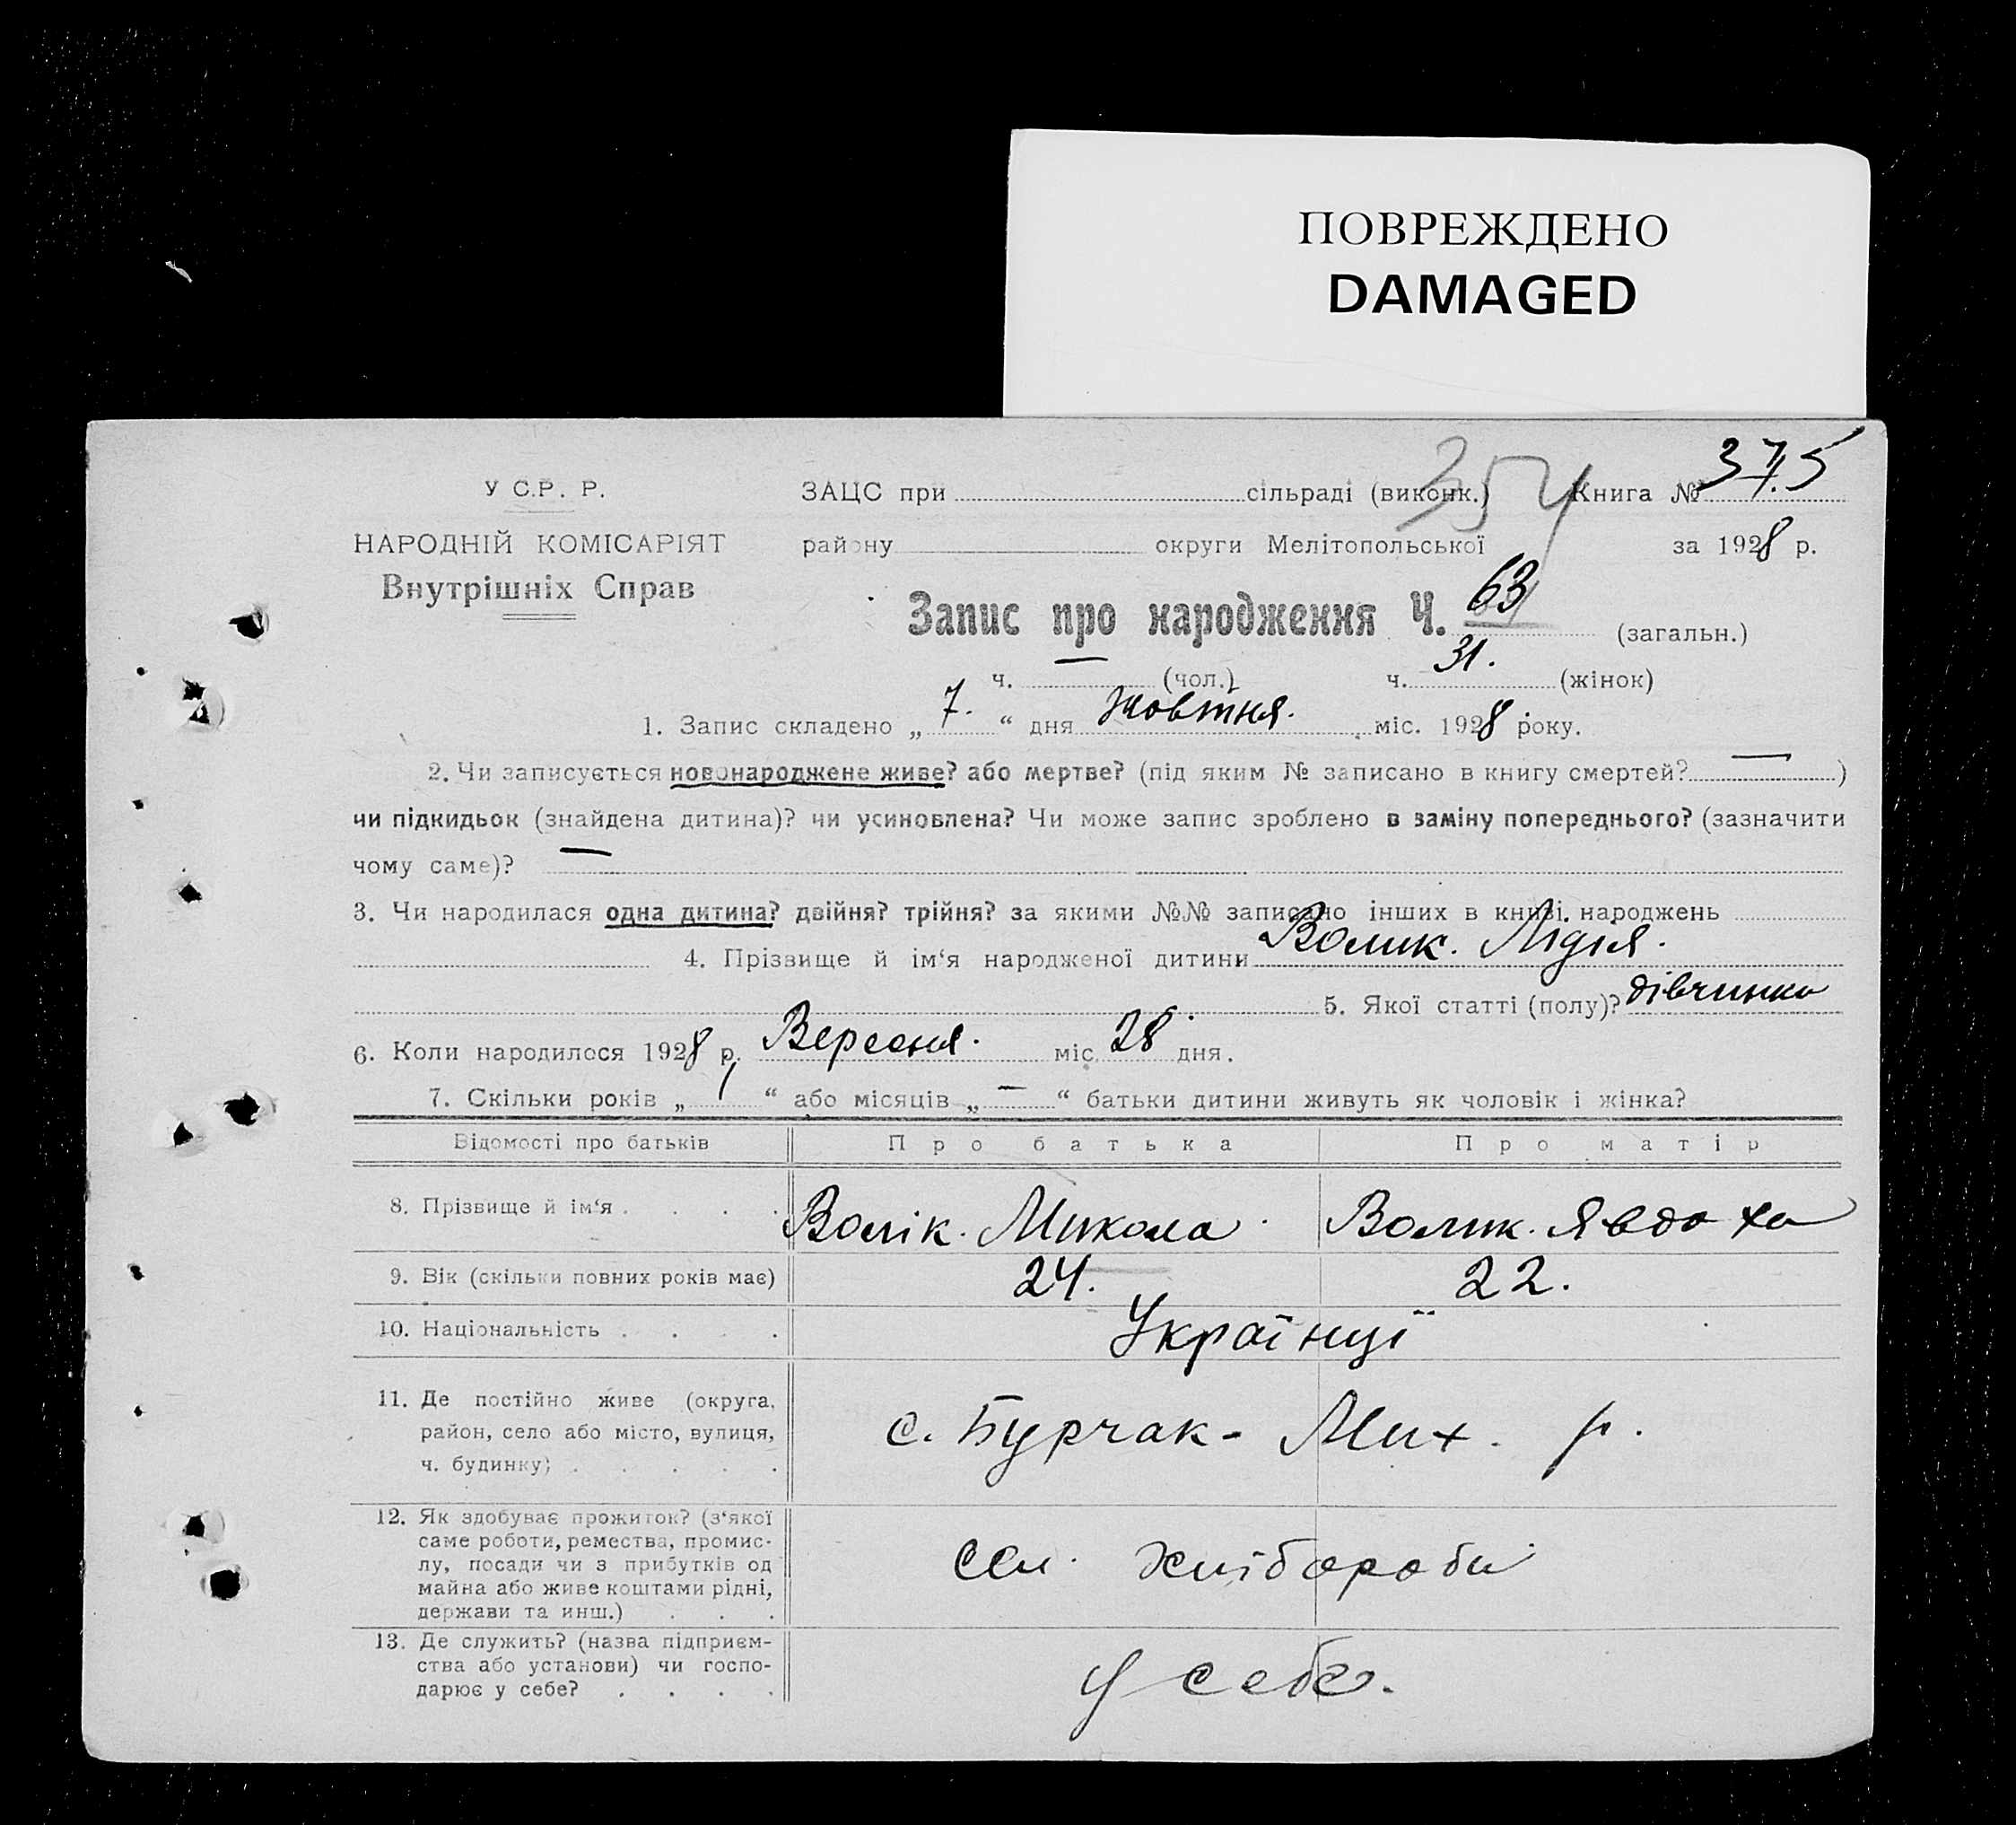 ПОВРЕЖДЕНО
DAMAGED
У С.Р. Р.
НАРОДНІЙ КОМІСАРІЯТ
Внутрішніх Справ
354
ЗАЦС при сільраді (виконк.) Книга № 375
району округи Мелітопольської за 1928 р.
Запис про народження Ч. 63 (загальн.)
ч. — (чол.) ч. 31. (жінок)
1. Запис складено „ 7. “ дня Жовтня. міс. 1928 року.
2. Чи записується новонароджене живе? або мертве? (під яким № записано в книгу смертей? — )
чи підкидьок (знайдена дитина)? чи усиновлена? Чи може запис зроблено в заміну попереднього? (зазначити
чому саме)? —
3. Чи народилася одна дитина? двійня? трійня? за якими №№ записано інших в книзі народжень
4. Прізвище й ім‘я народженої дитини Волик. Лідія.
5. Якої статті (полу)? дівчинка
6. Коли народилося 1928 р. Вересня. міс. 28 дня.
7. Скільки років „ 1 “ або місяців „ — “ батьки дитини живуть як чоловік і жінка?
Відомості про батьків Про батька Про матір
8. Прізвище й ім‘я . . . . Волік. Микола. Волик. Явдоха
9. Вік (скільки повних років має) 24. 22.
10. Національність . . . . Українці
11. Де постійно живе (округа,
район, село або місто, вулиця,
ч. будинку) . . . . .
с. Бурчак- Мих. р.
12. Як здобуває прожиток? (з‘якої
саме роботи, ремества, промис-
лу, посади чи з прибутків од
майна або живе коштами рідні,
держави та инш.) . . .
сел. хлібороби
13. Де служить? (назва підприєм-
ства або установи) чи госпо-
дарює у себе? . . . .
у себе.